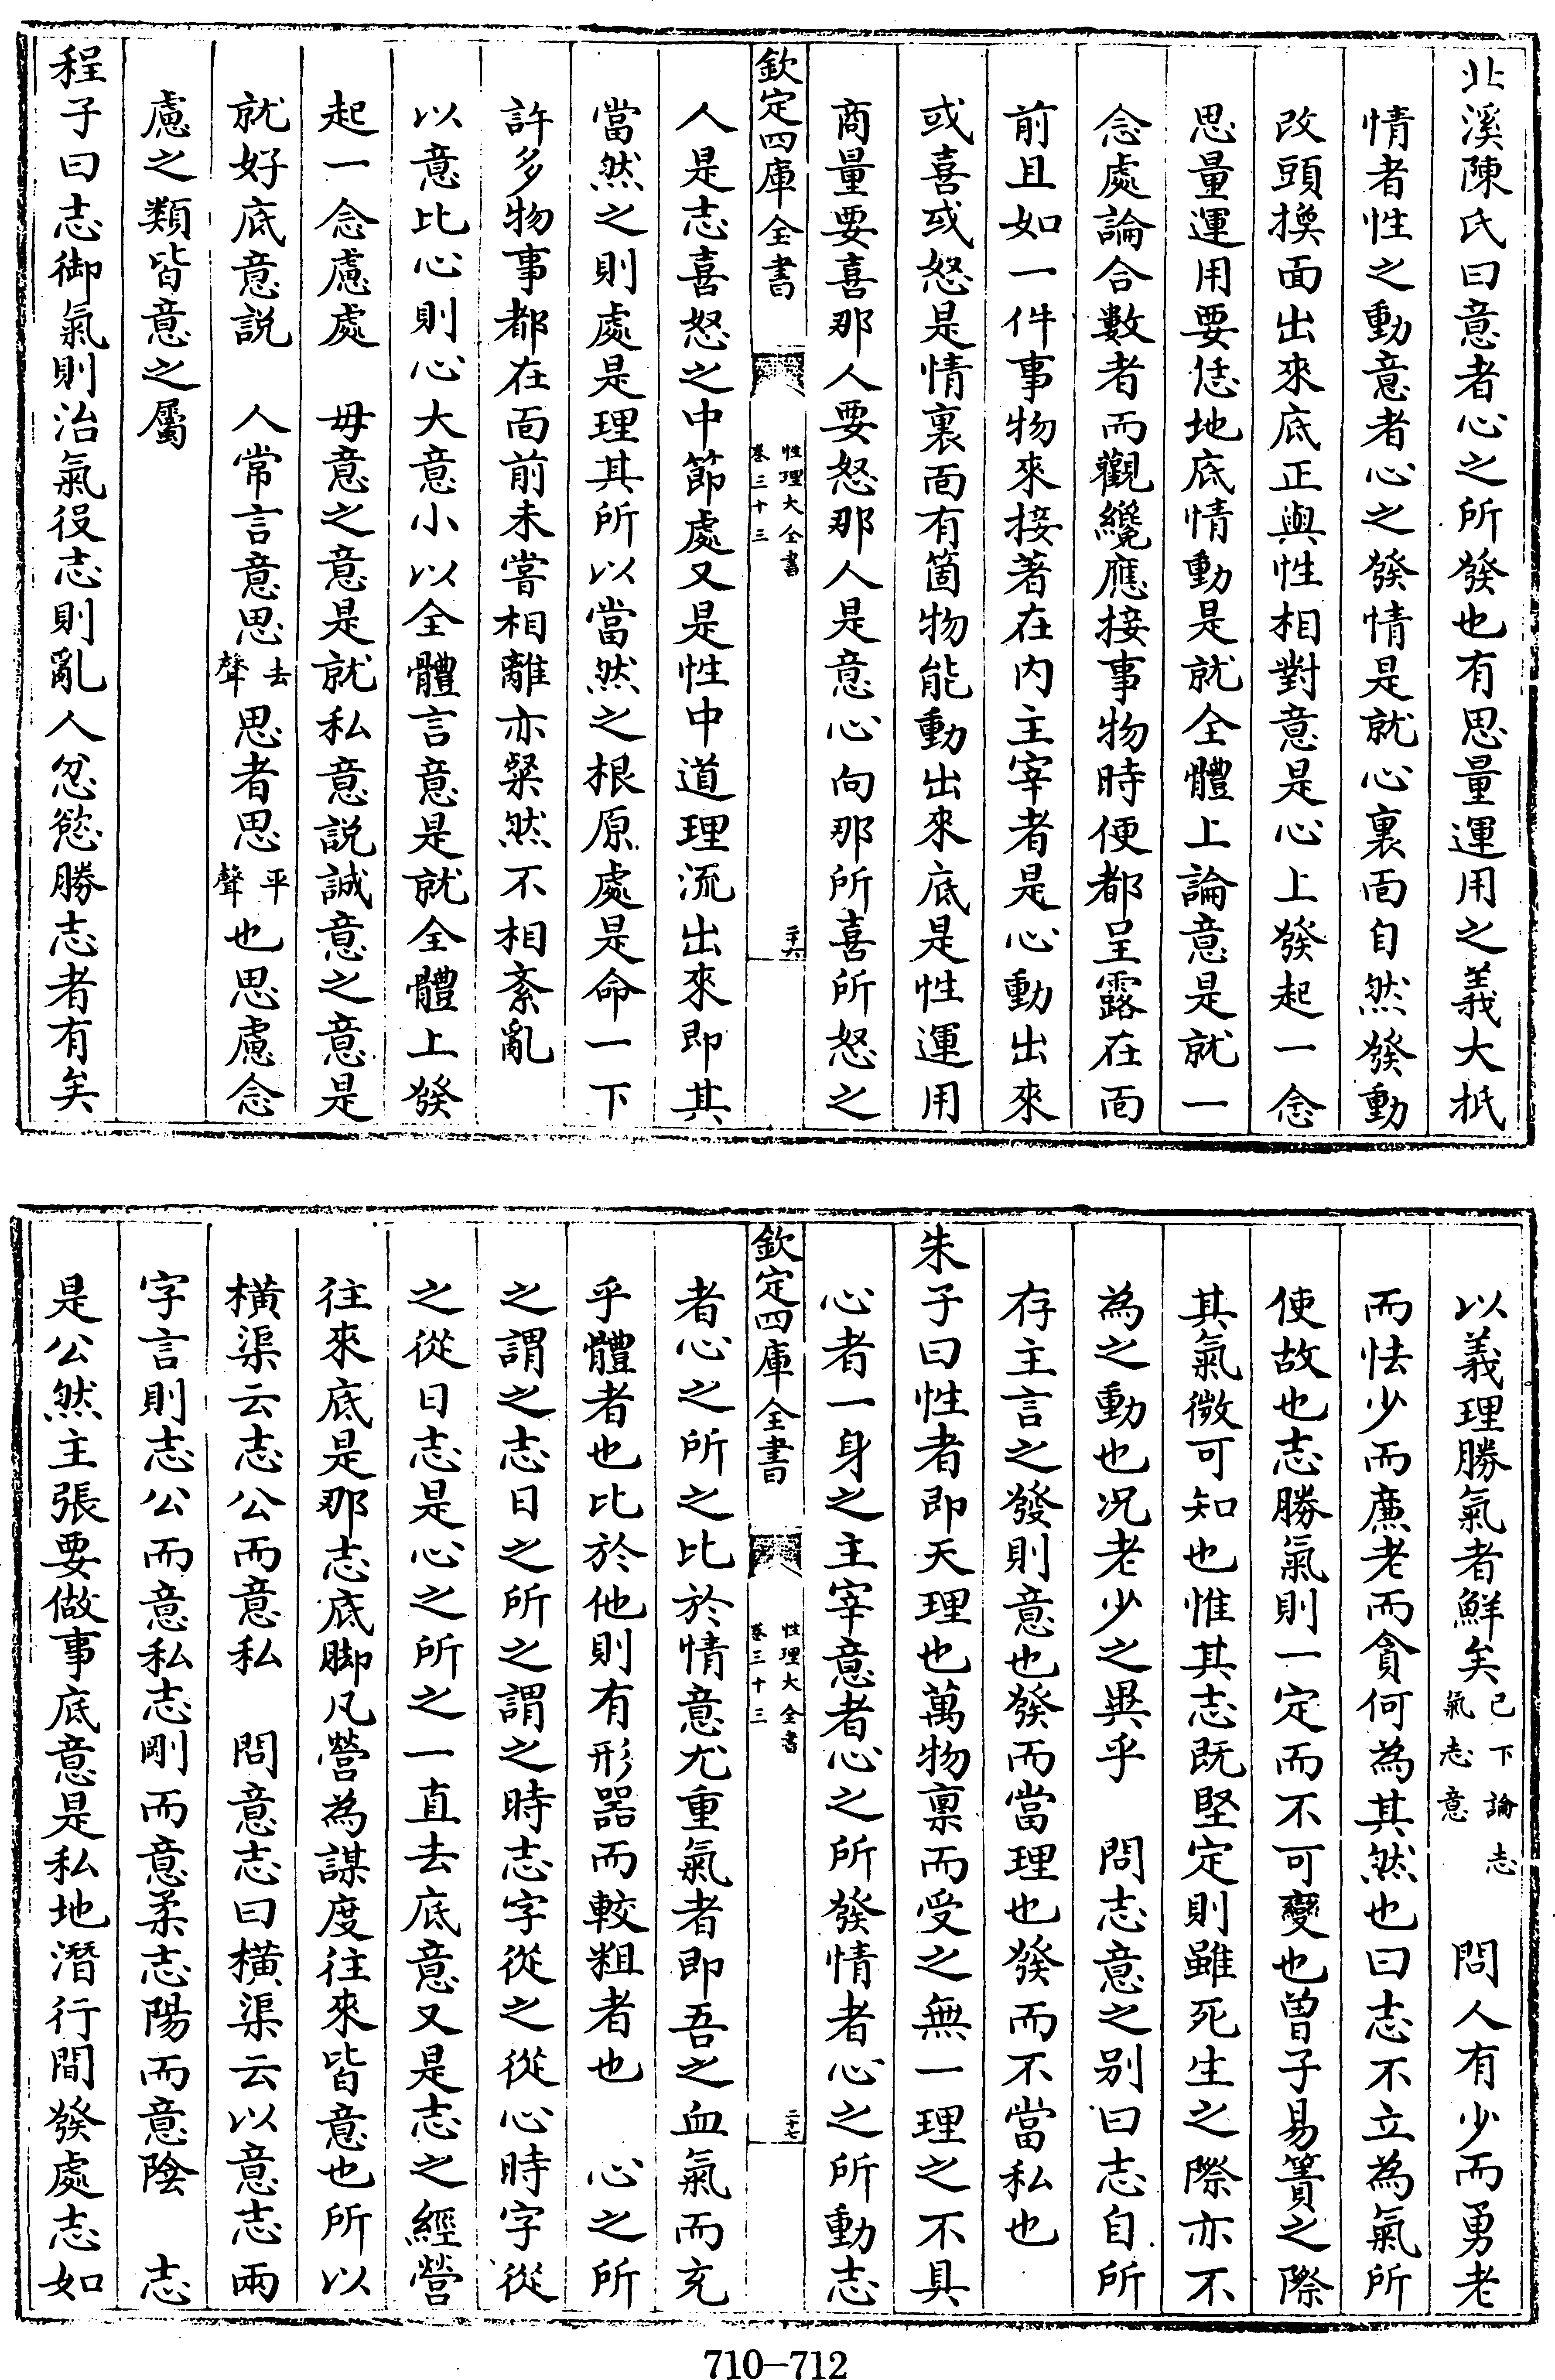 北溪陳氏曰意者心之所發也有思量運用之義大抵
情者性之動意者心之發情是就心裏面自然發動
改頭換面出來底正與性相對意是心上發起一念
思量運用要恁地底情動是就全體上論意是就一
念處論合數者而觀纔應接事物時便都呈露在面
前且如一件事物來接著在内主宰者是心動出來
或喜或怒是情裏面有箇物能動出來底是性運用
商量要喜那人要怒那人是意心向那所喜所怒之
欽定四庫全書
性理大全書
卷三十三
二十六
人是志喜怒之中節處又是性中道理流出來即其
當然之則處是理其所以當然之根原處是命一下
許多物事都在面前未嘗相離亦粲然不相紊亂
以意比心則心大意小以全體言意是就全體上發
起一念慮處　毋意之意是就私意説誠意之意是
就好底意説　人常言意思去聲思者思平聲也思慮念
慮之類皆意之屬
程子曰志御氣則治氣役志則亂人忿慾勝志者有矣
以義理勝氣者鮮矣已下論志氣志意　問人有少而勇老
而怯少而廉老而貪何為其然也曰志不立為氣所
使故也志勝氣則一定而不可變也曾子易簀之際
其氣微可知也惟其志既堅定則雖死生之際亦不
為之動也况老少之異乎　問志意之别曰志自所
存主言之發則意也發而當理也發而不當私也
朱子曰性者即天理也萬物稟而受之無一理之不具
心者一身之主宰意者心之所發情者心之所動志
欽定四庫全書
性理大全書
卷三十三
二十七
者心之所之比於情意尤重氣者即吾之血氣而充
乎體者也比於他則有形器而較粗者也　心之所
之謂之志日之所之謂之時志字從之從心時字從
之從日志是心之所之一直去底意又是志之經營
往來底是那志底脚凡營為謀度往來皆意也所以
橫渠云志公而意私　問意志曰橫渠云以意志兩
字言則志公而意私志剛而意柔志陽而意陰　志
是公然主張要做事底意是私地潛行間發處志如
710—712